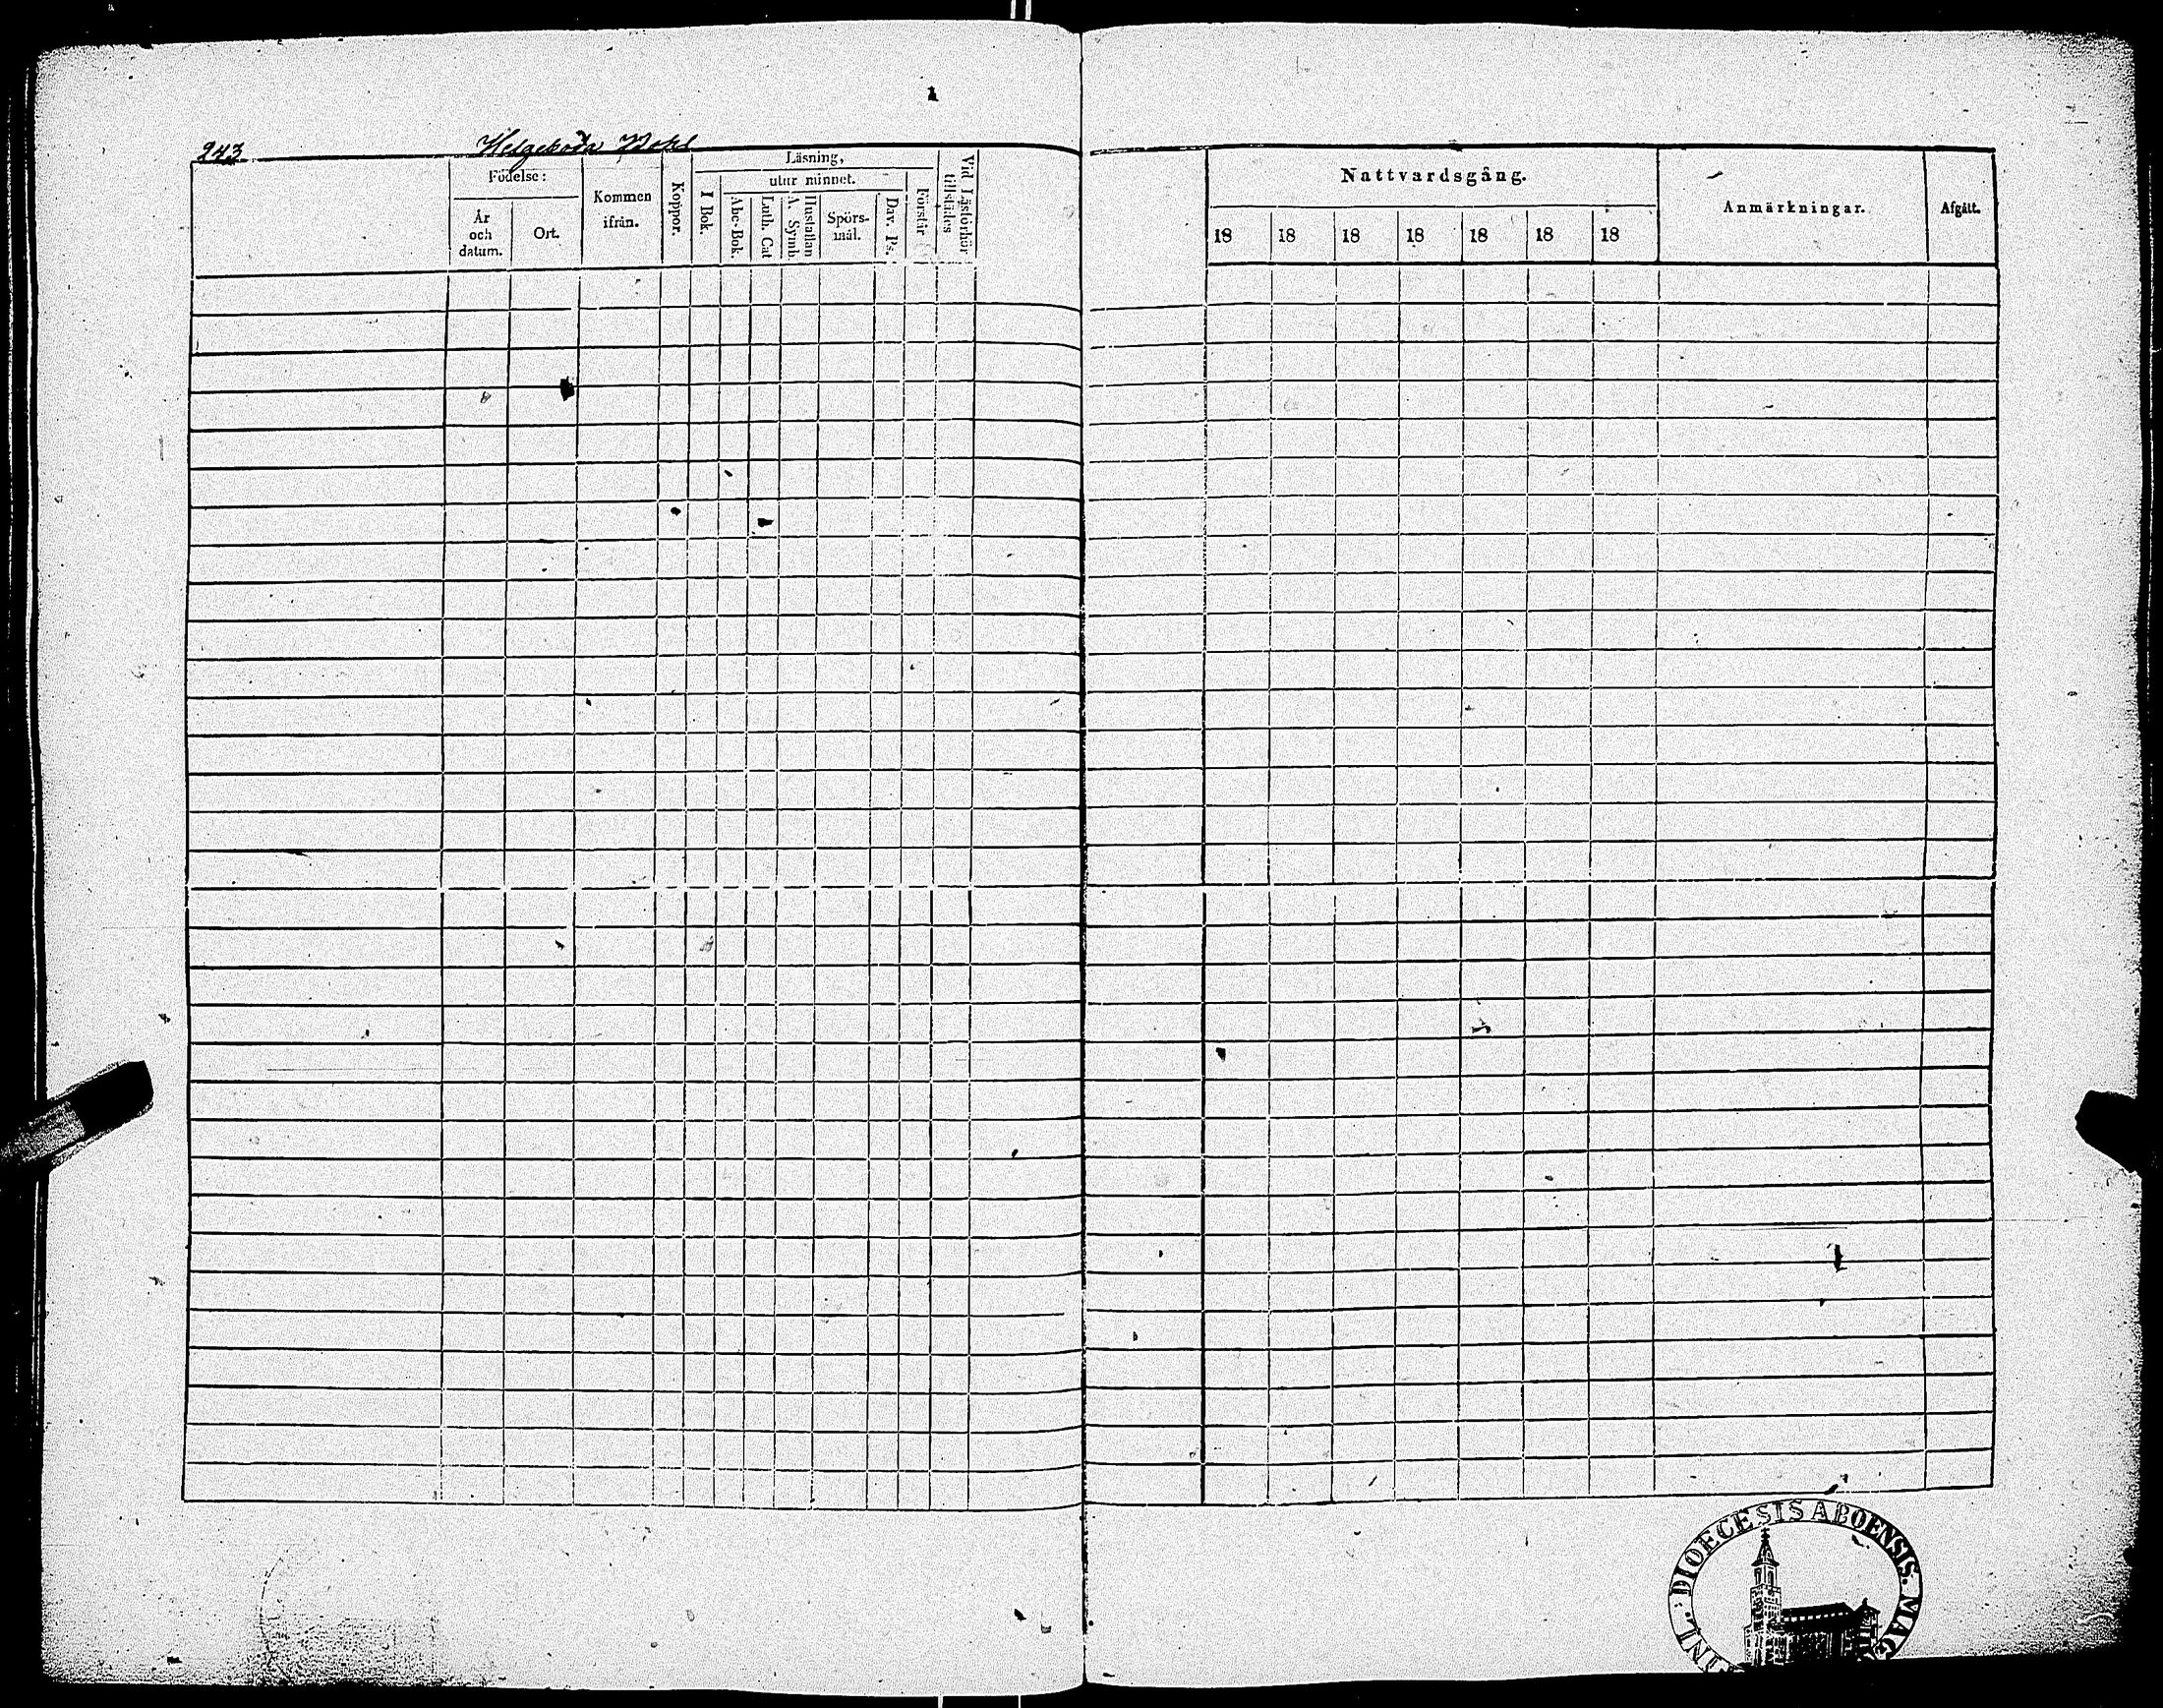 243 Helgeboda
Födelse:
År
och
datum.
Ort.
Kommen
ifrån.
Koppor.
Läsning,
utur minnet.
I Bok.
Abc-Bok.
Luth. Cat
Hustaflan
A. Symb.
Spörs-
mål.
Dav. Ps.
Förstår
Vid Läsförhör
tillstädes
Nattvardsgång.
18 18 18 18 18 18 18
Anmärkningar.
Afgått.
DIOECESIS ABOENSIS.